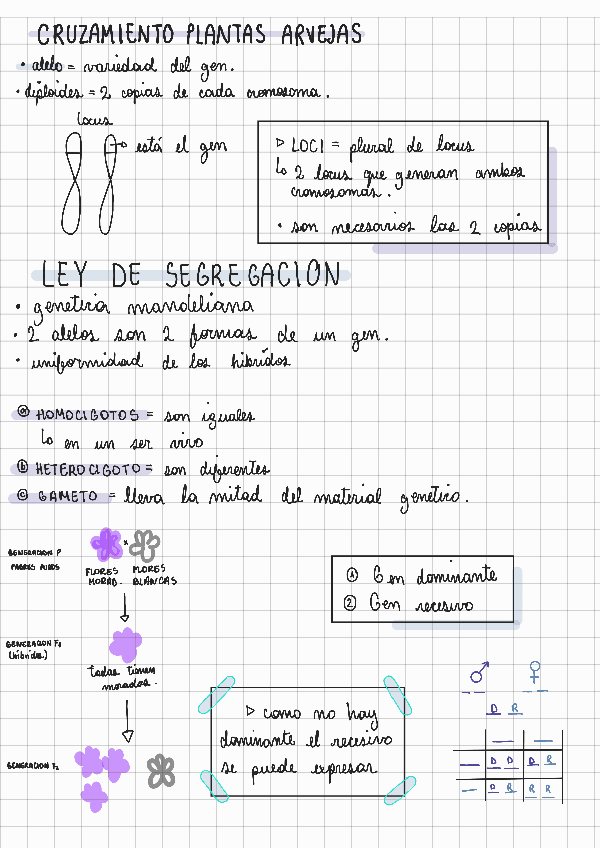 CRUZAMIENTO PLANTAS ARVEJAS
• alelo = variedad del gen.
• diploides = 2 copias de cada cromosoma.
locus
→ está el gen
▷ LOCI = plural de locus
↳ 2 locus que generan ambos
cromosomas.
• son necesarios las 2 copias
LEY DE SEGREGACION
• genetica mandeliana
• 2 alelos son 2 formas de un gen.
• uniformidad de los hibridos
ⓐ HOMOCIGOTOS = son iguales
↳ en un ser vivo
ⓑ HETEROCIGOTO = son diferentes
ⓒ GAMETO = lleva la mitad del material genético.
GENERACION P
PADRES PUROS
x
FLORES
MORAD.
FLORES
BLANCAS
① Gen dominante
② Gen recesivo
GENERACION F1
(híbridos)
todas tienen
morados.
♂ ♀
D R
▷ como no hay
dominante el recesivo
se puede expresar
GENERACION F2
D D D R
D R R R